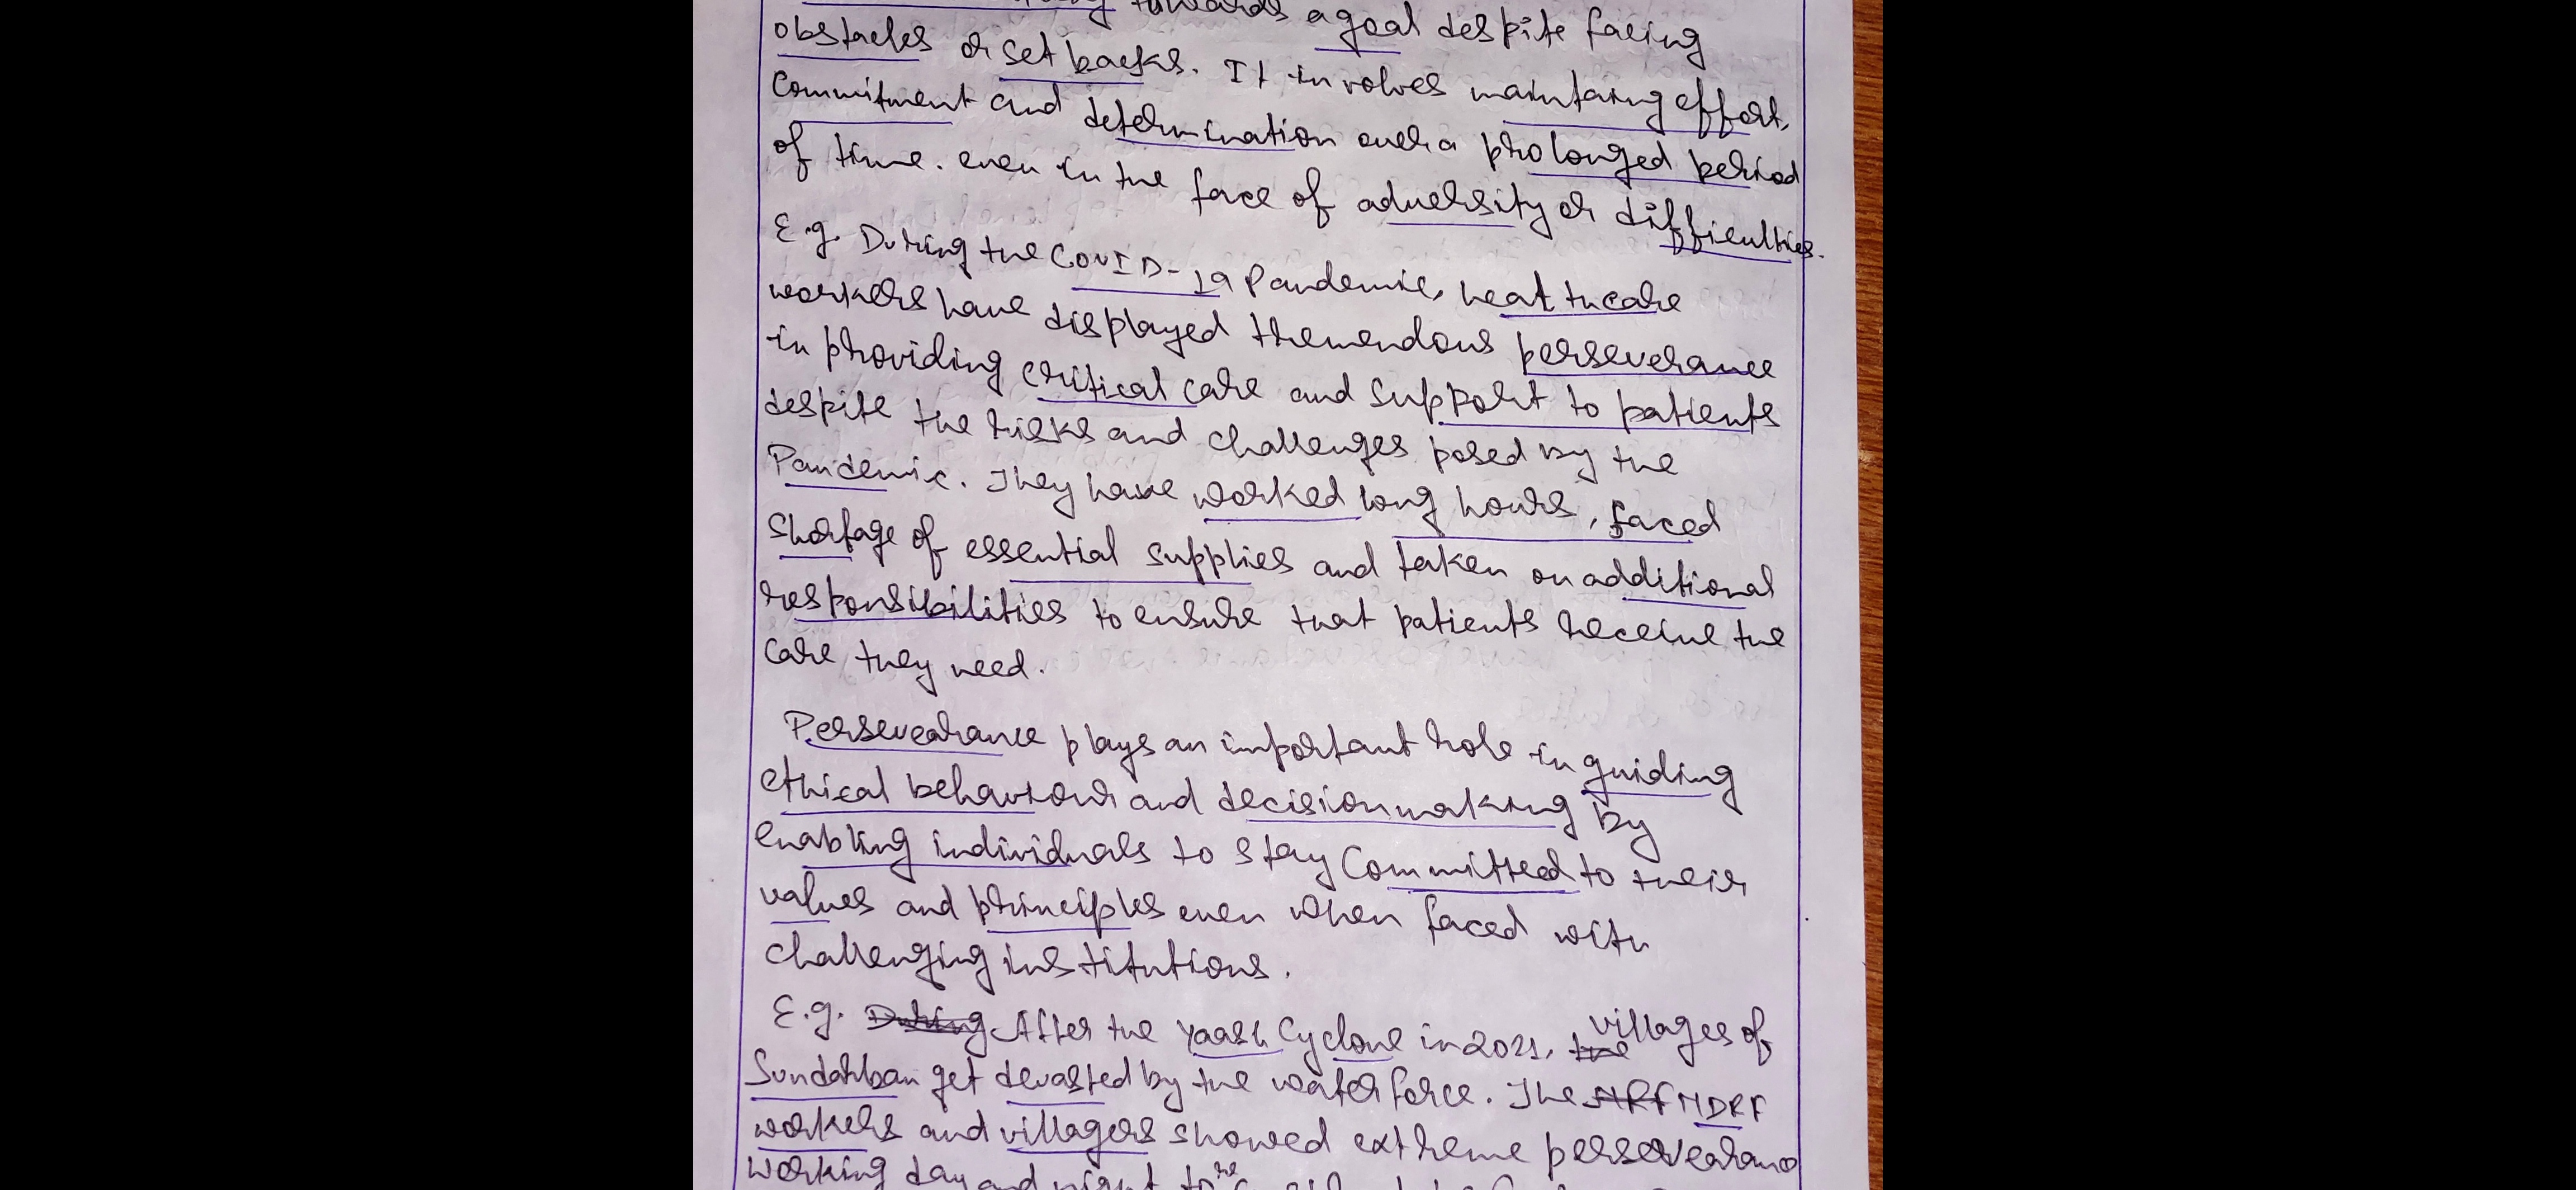 towards a goal despite facing
obstacles or set backs. It involves maintaing effort,
Commitment and determination over a prolonged period
of time. even in the face of adversity or difficulties.
E.g. During the COVID-19 Pandemic, healthcare
workers have displayed tremendous perseverance
in providing critical care and support to patients
despite the risks and challenges posed by the
Pandemic. They have worked long hours, faced
shortage of essential supplies and taken on additional
responsibilities to ensure that patients receive the
care they need.
Persevearance plays an important role in guiding
ethical behaviour and decision making by
enabling individuals to stay committed to their
values and principles even when faced with
challenging institutions.
E.g. During After the Yaash Cyclone in 2021, the villages of
Sundarban get devasted by the water force. The NDRF
workers and villagers showed extreme persevearance
working day and night to